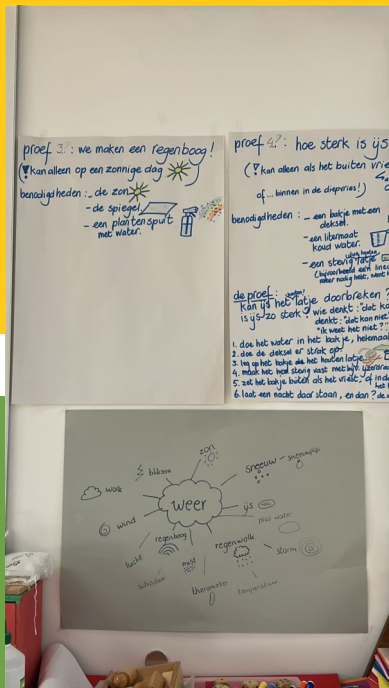 proef 3?: we maken een regenboog!
(kan alleen op een zonnige dag)
benodigdheden: - de zon
- de spiegel
- een plantenspuit
met water.
proef 4?: hoe sterk is ijs
(kan alleen als het buiten vrie
of... binnen in de diepvries!)
benodigdheden: - een bakje met een
deksel.
- een litermaat
koud water.
- een stevig latje
(bijvoorbeeld een linea
de proef:
kan ijs het latje doorbreken?
is ijs zo sterk? wie denkt: "dat ka
denkt: "dat kan niet
"ik weet het niet?"
1. doe het water in het bakje, helemaal
2. doe de deksel er strak op.
3. leg op het bakje de het houten latje
4. maak het heel stevig vast met bijv. ijzerdraa
5. zet het bakje buiten als het vriest, of in de
6. laat een nacht door staan, en dan?
weer
zon
bliksem
sneeuw - sneeuwpop
wolk
ijs
wind
regenboog
regenwolk
storm
lucht
mist
schaduw
thermometer
temperatuur